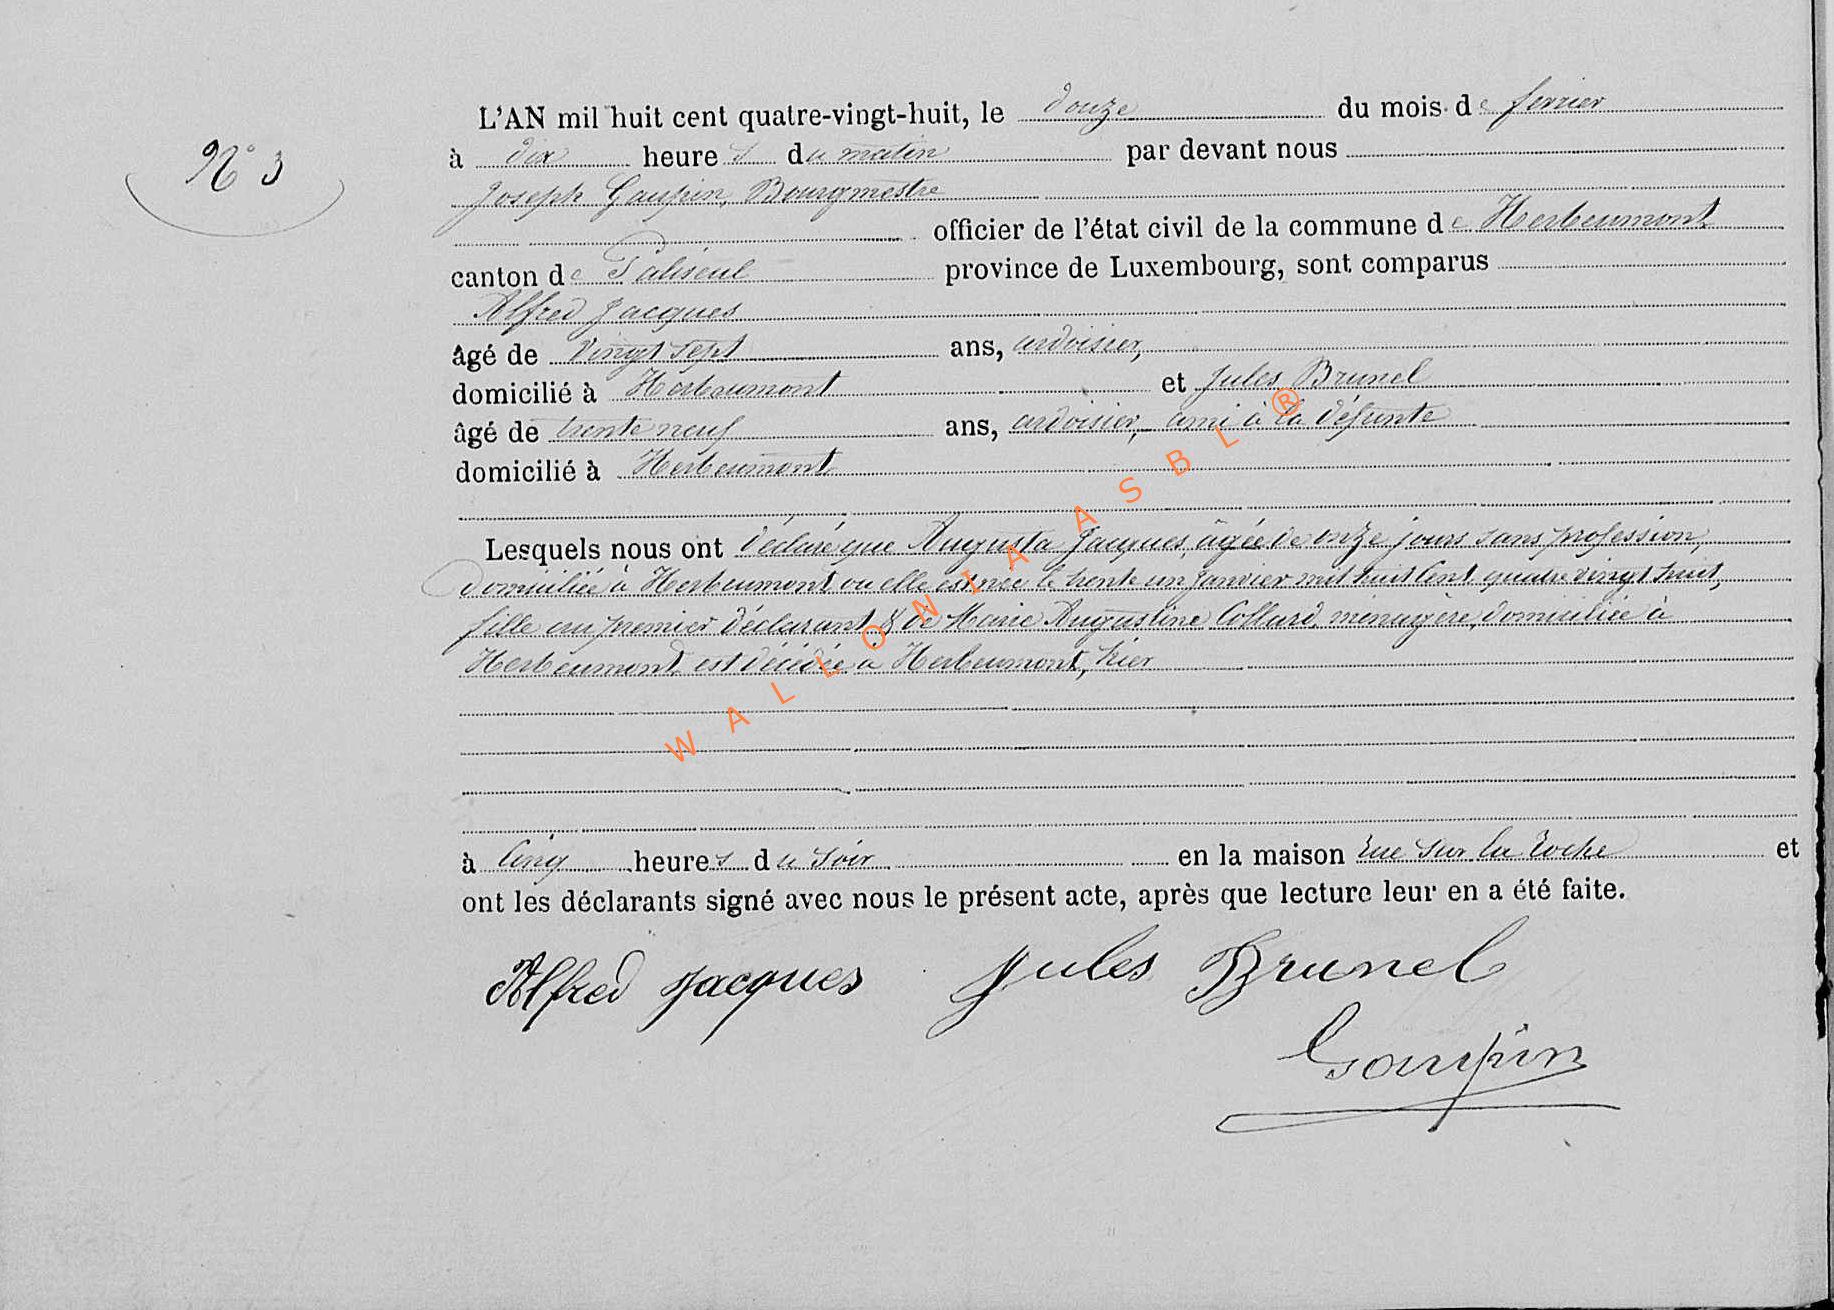 L'AN mil huit cent quatre-vingt-huit, le douze du mois de fevrier
N° 3
à dix heures du matin par devant nous
Joseph Gaupin, Bourgmestre
officier de l'état civil de la commune de Herbeumont
canton de Paliseul province de Luxembourg, sont comparus
Alfred Jacques
âgé de vingt sept ans, ardoisier,
domicilié à Herbeumont et Jules Brunel
âgé de trente neuf ans, ardoisier, ami à la défunte
domicilié à Herbeumont
Lesquels nous ont déclaré que Augusta Jacques, âgée de onze jours sans profession,
domiciliée à Herbeumont ou elle est née le trente un janvier mil huit cent quatre vingt huit,
fille au premier déclarant & de Marie Augustine Collard, ménagère, domiciliée à
Herbeumont, est décédée à Herbeumont, hier
à cinq heures du soir en la maison rue sur la roche et
ont les déclarants signé avec nous le présent acte, après que lecture leur en a été faite.
Alfred Jacques Jules Brunel
Gaupin
WALLONIA ASBL ®